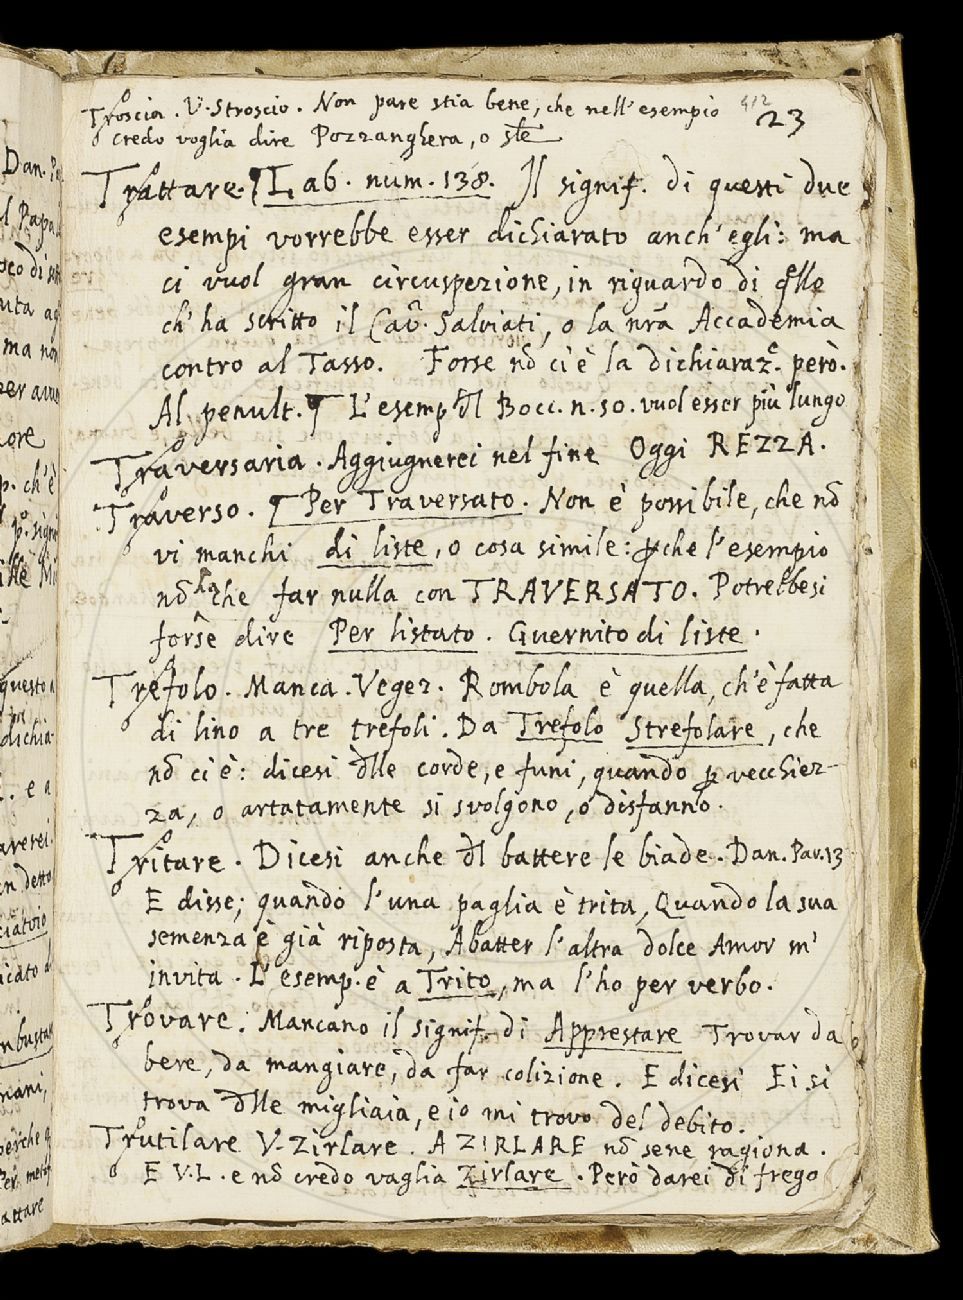 Troscia. V. Stroscio. Non pare stia bene, che nell'esempio
412
23
credo voglia dire Pozzanghera, o sīle
Trattare. ¶ Lab. num. 138. Il signif. di questi due
esempi vorrebbe esser dichiarato anch'egli: ma
ci vuol gran circuspezione, in riguardo di q̃llo
ch'ha scritto il Cav. Salviati, o la nr̃a Accademia
contro al Tasso. Forse nō ci è la dichiaraz.e però.
Al penult. ¶ L'esemp. d̄l Bocc. n. 50. vuol esser più lungo
Traversaria. Aggiugnerei nel fine Oggi REZZA.
Traverso. ¶ Per Traversato. Non è possibile, che nō
vi manchi di liste, o cosa simile: p̱che l'esempio
nō ha che far nulla con TRAVERSATO. Potrebbesi
forse dire Per listato. Guernito di liste.
Trefolo. Manca. Vegez. Rombola è quella, ch'è fatta
di lino a tre trefoli. Da Trefolo Strefolare, che
nō ci è: dicesi d̄lle corde, e funi, quando p̱ vecchiez-
za, o artatamente si svolgono, o disfanno.
Tritare. Dicesi anche d̄l battere le biade. Dan. Par. 13
E disse; quando l'una paglia è trita, Quando la sua
semenza è già riposta, A batter l'altra dolce Amor m'
invita. L'esemp. è a Trito, ma l'ho per verbo.
Trovare. Mancano il signif. di Apprestare Trovar da
bere, da mangiare, da far colizione. E dicesi Ei si
trova d̄lle migliaia, e io mi trovo del debito.
Trutilare V. Zirlare. A ZIRLARE nō se ne ragiona.
E V.L. e nō credo vaglia Zirlare. Però darei di frego